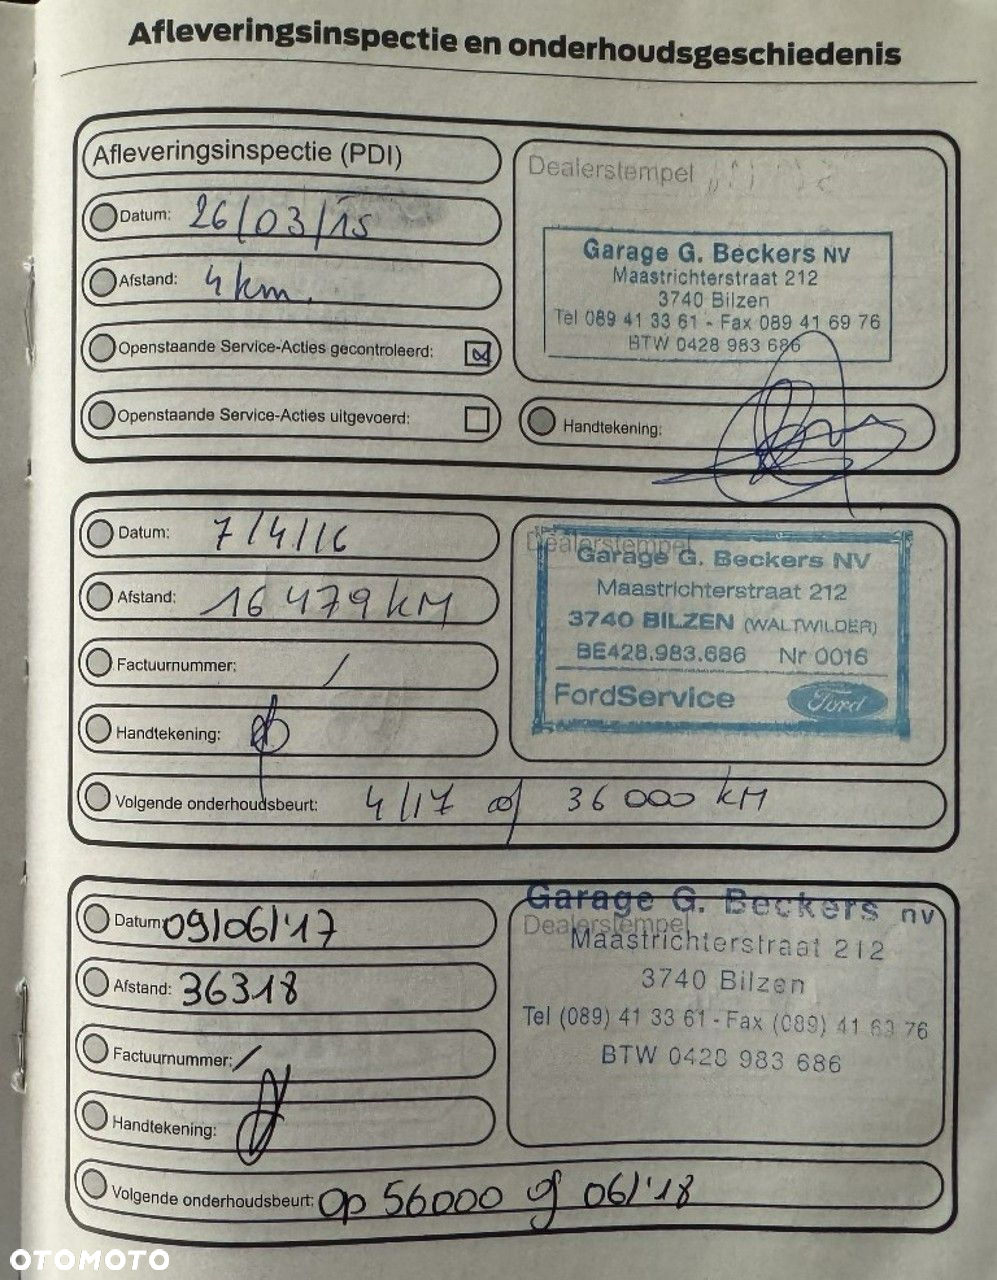 Afleveringsinspectie en onderhoudsgeschiedenis
Afleveringsinspectie (PDI)
Datum: 26/03/15
Afstand: 4 km.
Openstaande Service-Acties gecontroleerd:
Openstaande Service-Acties uitgevoerd:
Dealerstempel
Garage G. Beckers NV
Maastrichterstraat 212
3740 Bilzen
Tel 089 41 33 61 - Fax 089 41 69 76
BTW 0428 983 686
Handtekening:
Datum: 7/4/16
Afstand: 16 479 KM
Factuurnummer: /
Handtekening:
Volgende onderhoudsbeurt: 4/17 of 36 000 KM
Dealerstempel
Garage G. Beckers NV
Maastrichterstraat 212
3740 BILZEN (WALTWILDER)
BE428.983.686 Nr 0016
FordService Ford
Datum: 09/06/'17
Afstand: 36318
Factuurnummer: /
Handtekening:
Volgende onderhoudsbeurt: op 56000 of 06/'18
Garage G. Beckers nv
Dealerstempel
Maastrichterstraat 212
3740 Bilzen
Tel (089) 41 33 61 - Fax (089) 41 69 76
BTW 0428 983 686
OTOMOTO